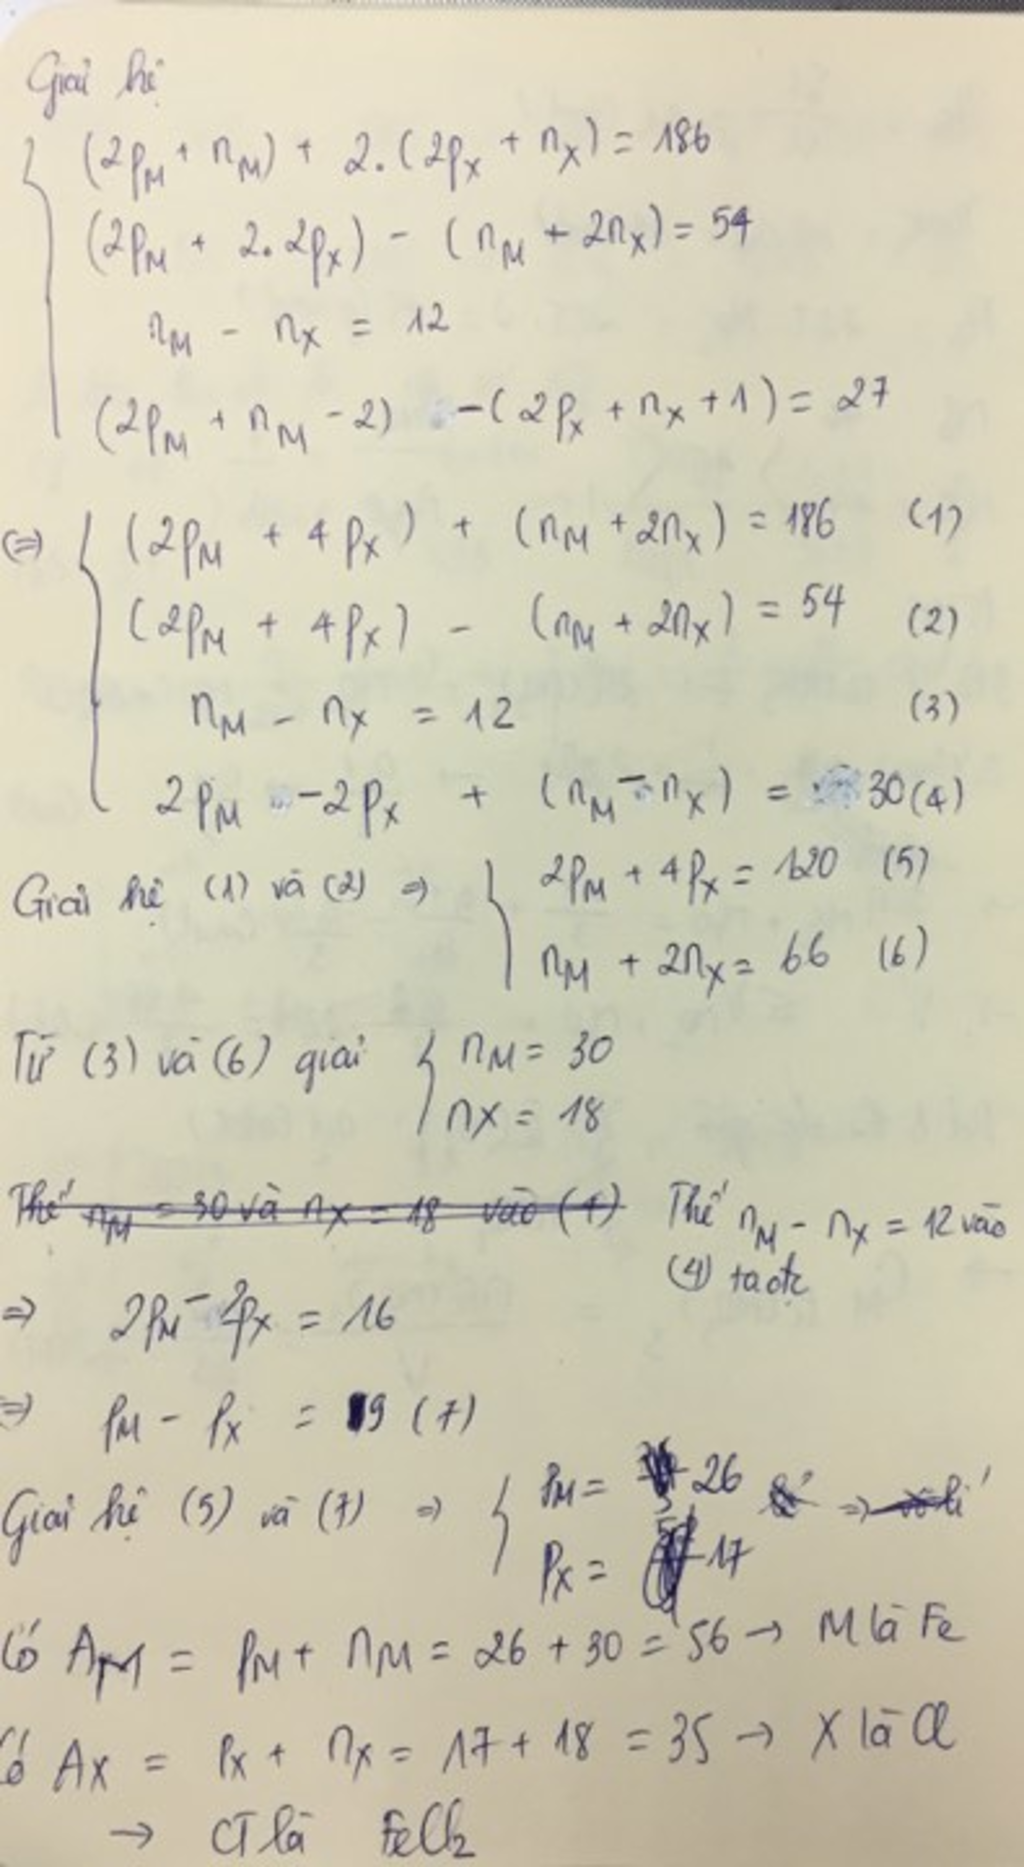 Giải hệ
(2pM + nM) + 2.(2pX + nX) = 186
(2pM + 2.2pX) - (nM + 2nX) = 54
nM - nX = 12
(2pM + nM - 2) - (2pX + nX + 1) = 27
(=) (2pM + 4pX) + (nM + 2nX) = 186 (1)
(2pM + 4pX) - (nM + 2nX) = 54 (2)
nM - nX = 12 (3)
2pM - 2pX + (nM - nX) = 30 (4)
Giải hệ (1) và (2) => 2pM + 4pX = 120 (5)
nM + 2nX = 66 (6)
Từ (3) và (6) giải nM = 30
nX = 18
Thế nM = 30 và nX = 18 vào (4) Thế nM - nX = 12 vào
(4) ta đc
=> 2pM - 2pX = 16
=> pM - pX = 9 (7)
Giải hệ (5) và (7) => pM = 26 =>
pX = 17
Có AM = pM + nM = 26 + 30 = 56 → M là Fe
Có AX = pX + nX = 17 + 18 = 35 → X là Cl
→ CT là FeCl2